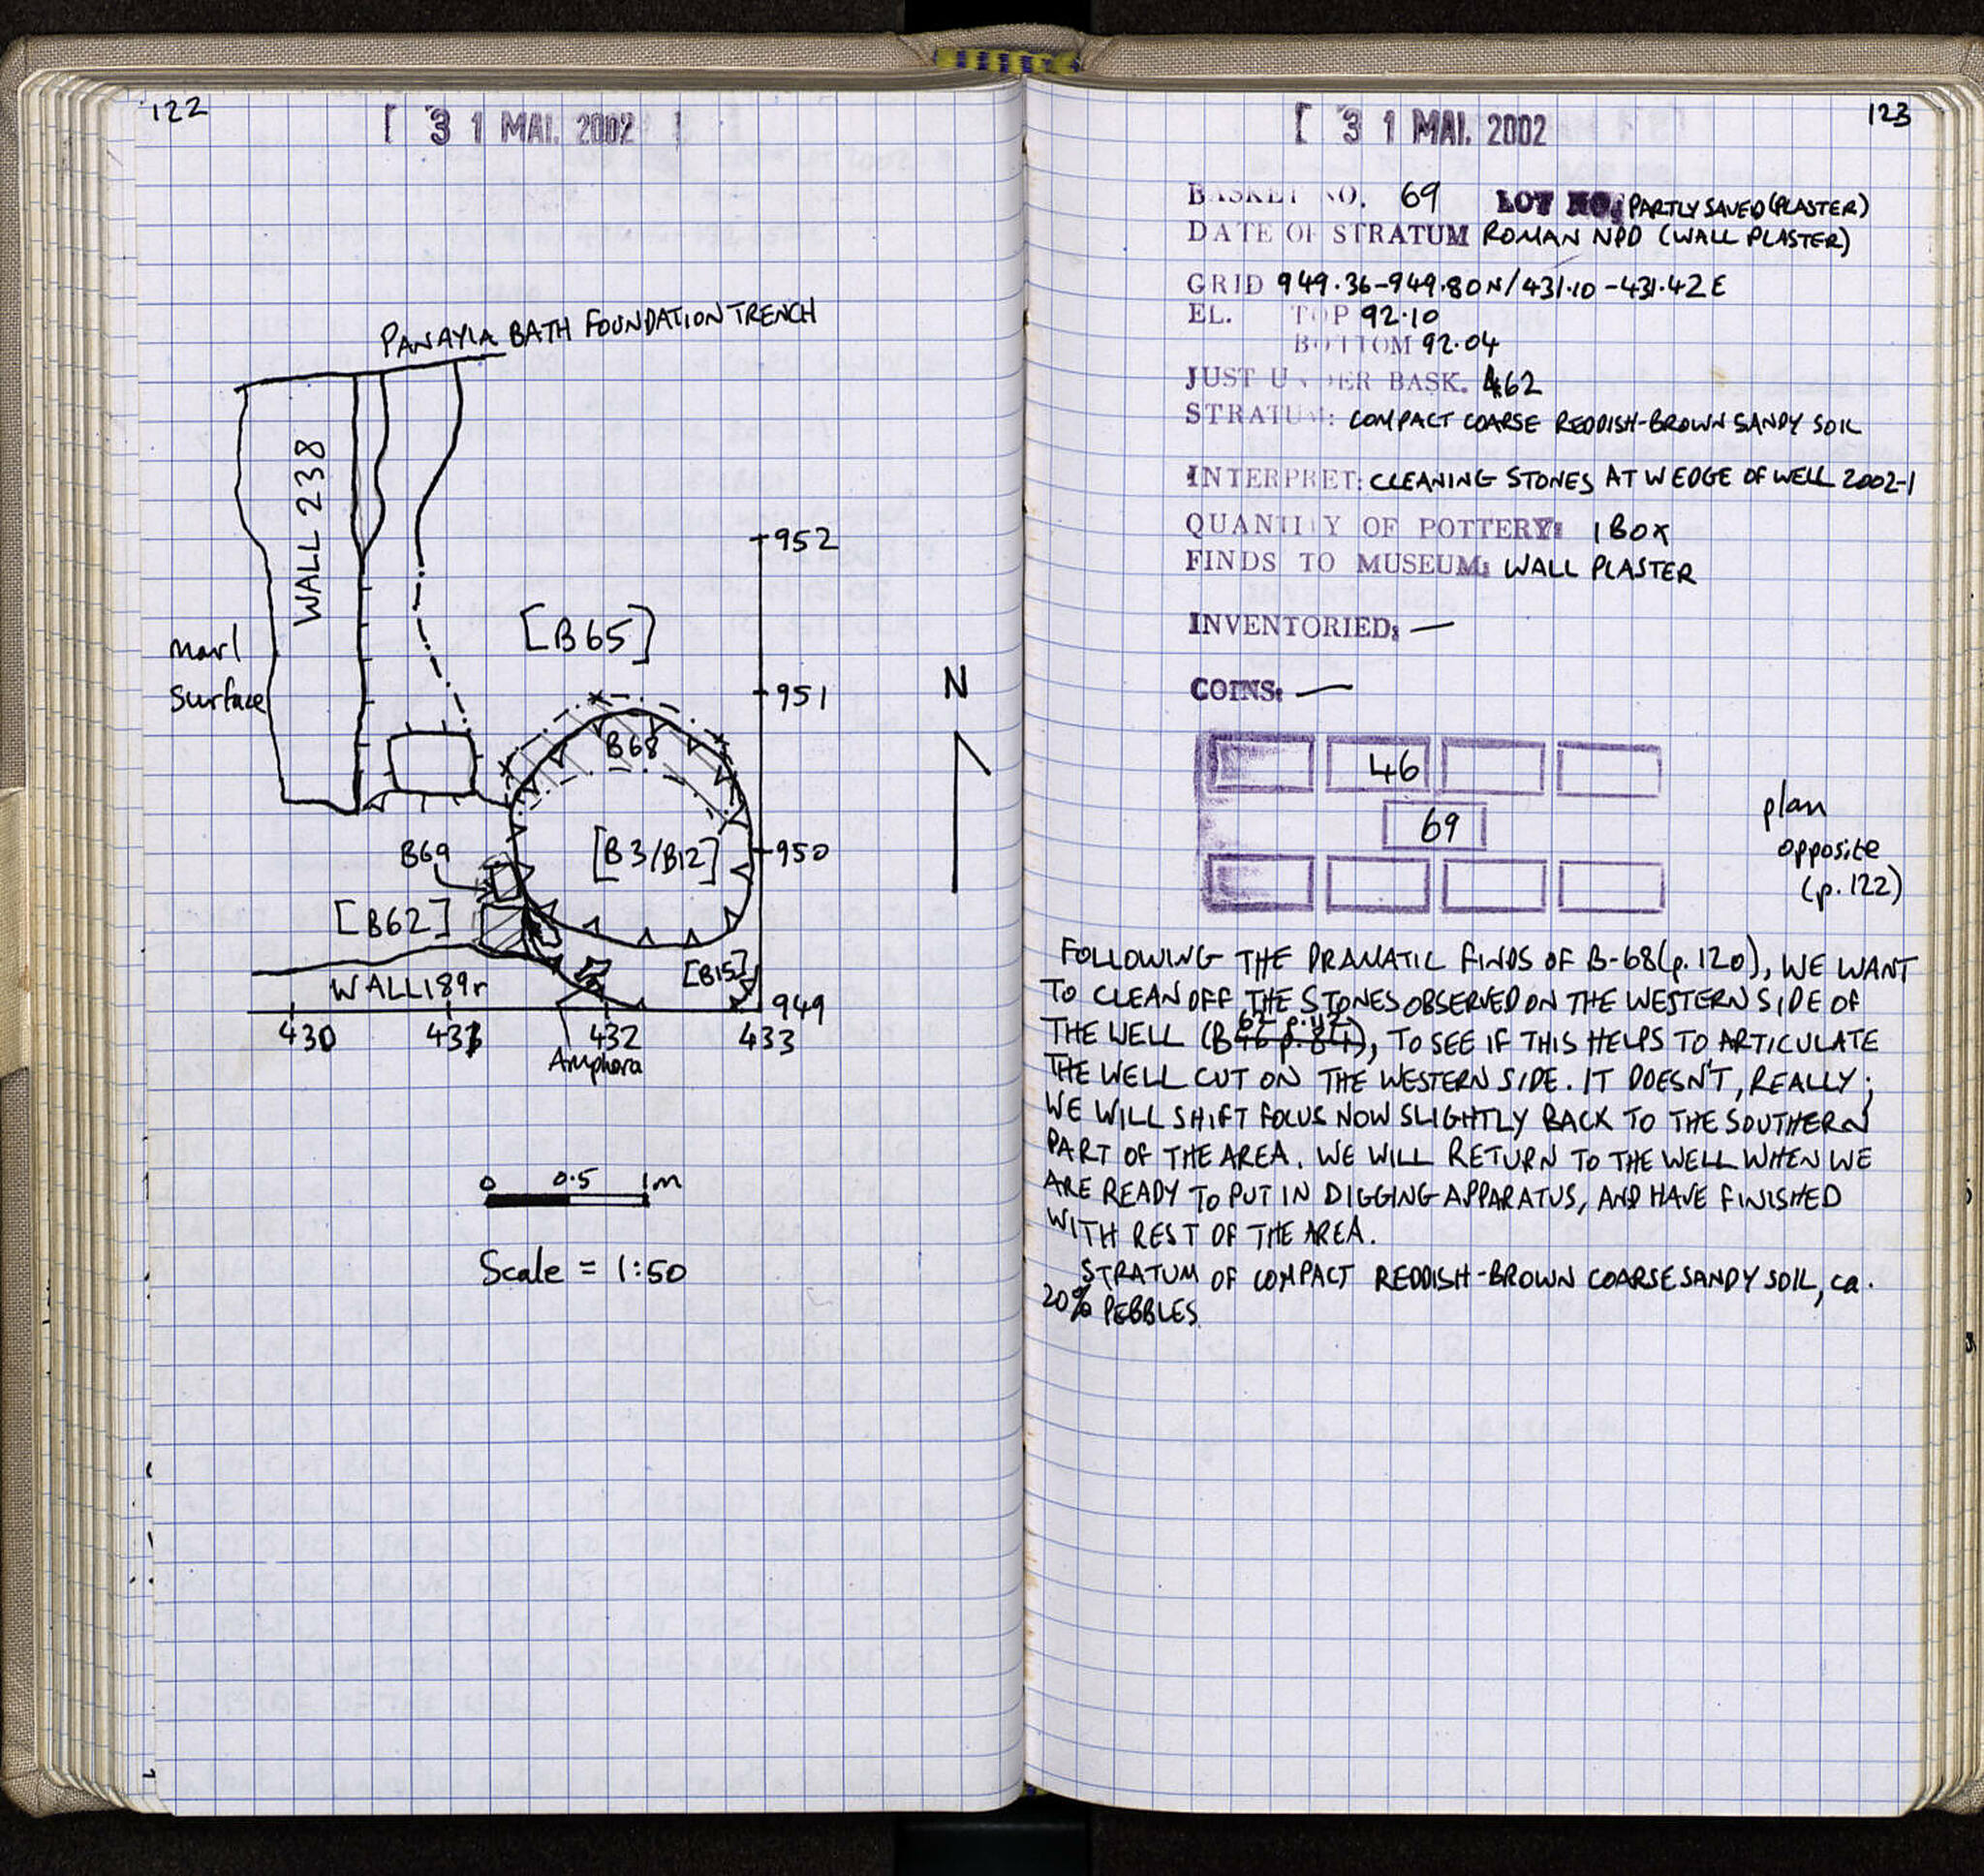 122
[ 31 MAI. 2002 ]
PANAYIA BATH FOUNDATION TRENCH
WALL 238
952
[B65]
marl
surface
951
N
B68
B69
[B3/B12]
950
[B62]
[B15]
WALL 189r
949
430
431
432
433
Amphora
0 0.5 1m
Scale = 1:50
123
[ 31 MAI. 2002
BASKET NO. 69 LOT NO. PARTLY SAVED (PLASTER)
DATE OF STRATUM ROMAN NPD (WALL PLASTER)
GRID 949.36-949.80N/431.10-431.42E
EL. TOP 92.10
BOTTOM 92.04
JUST UNDER BASK. 62
STRATUM: COMPACT COARSE REDDISH-BROWN SANDY SOIL
INTERPRET: CLEANING STONES AT W EDGE OF WELL 2002-1
QUANTITY OF POTTERY: 1 BOX
FINDS TO MUSEUM: WALL PLASTER
INVENTORIED: —
COINS: —
46
69
plan
opposite
(p.122)
FOLLOWING THE DRAMATIC FINDS OF B-68(p.120), WE WANT
TO CLEAN OFF THE STONES OBSERVED ON THE WESTERN SIDE OF
THE WELL (B 62 p.112 46 p.84), TO SEE IF THIS HELPS TO ARTICULATE
THE WELL CUT ON THE WESTERN SIDE. IT DOESN'T, REALLY;
WE WILL SHIFT FOCUS NOW SLIGHTLY BACK TO THE SOUTHERN
PART OF THE AREA. WE WILL RETURN TO THE WELL WHEN WE
ARE READY TO PUT IN DIGGING APPARATUS, AND HAVE FINISHED
WITH REST OF THE AREA.
STRATUM OF COMPACT REDDISH-BROWN COARSE SANDY SOIL, ca.
20% PEBBLES